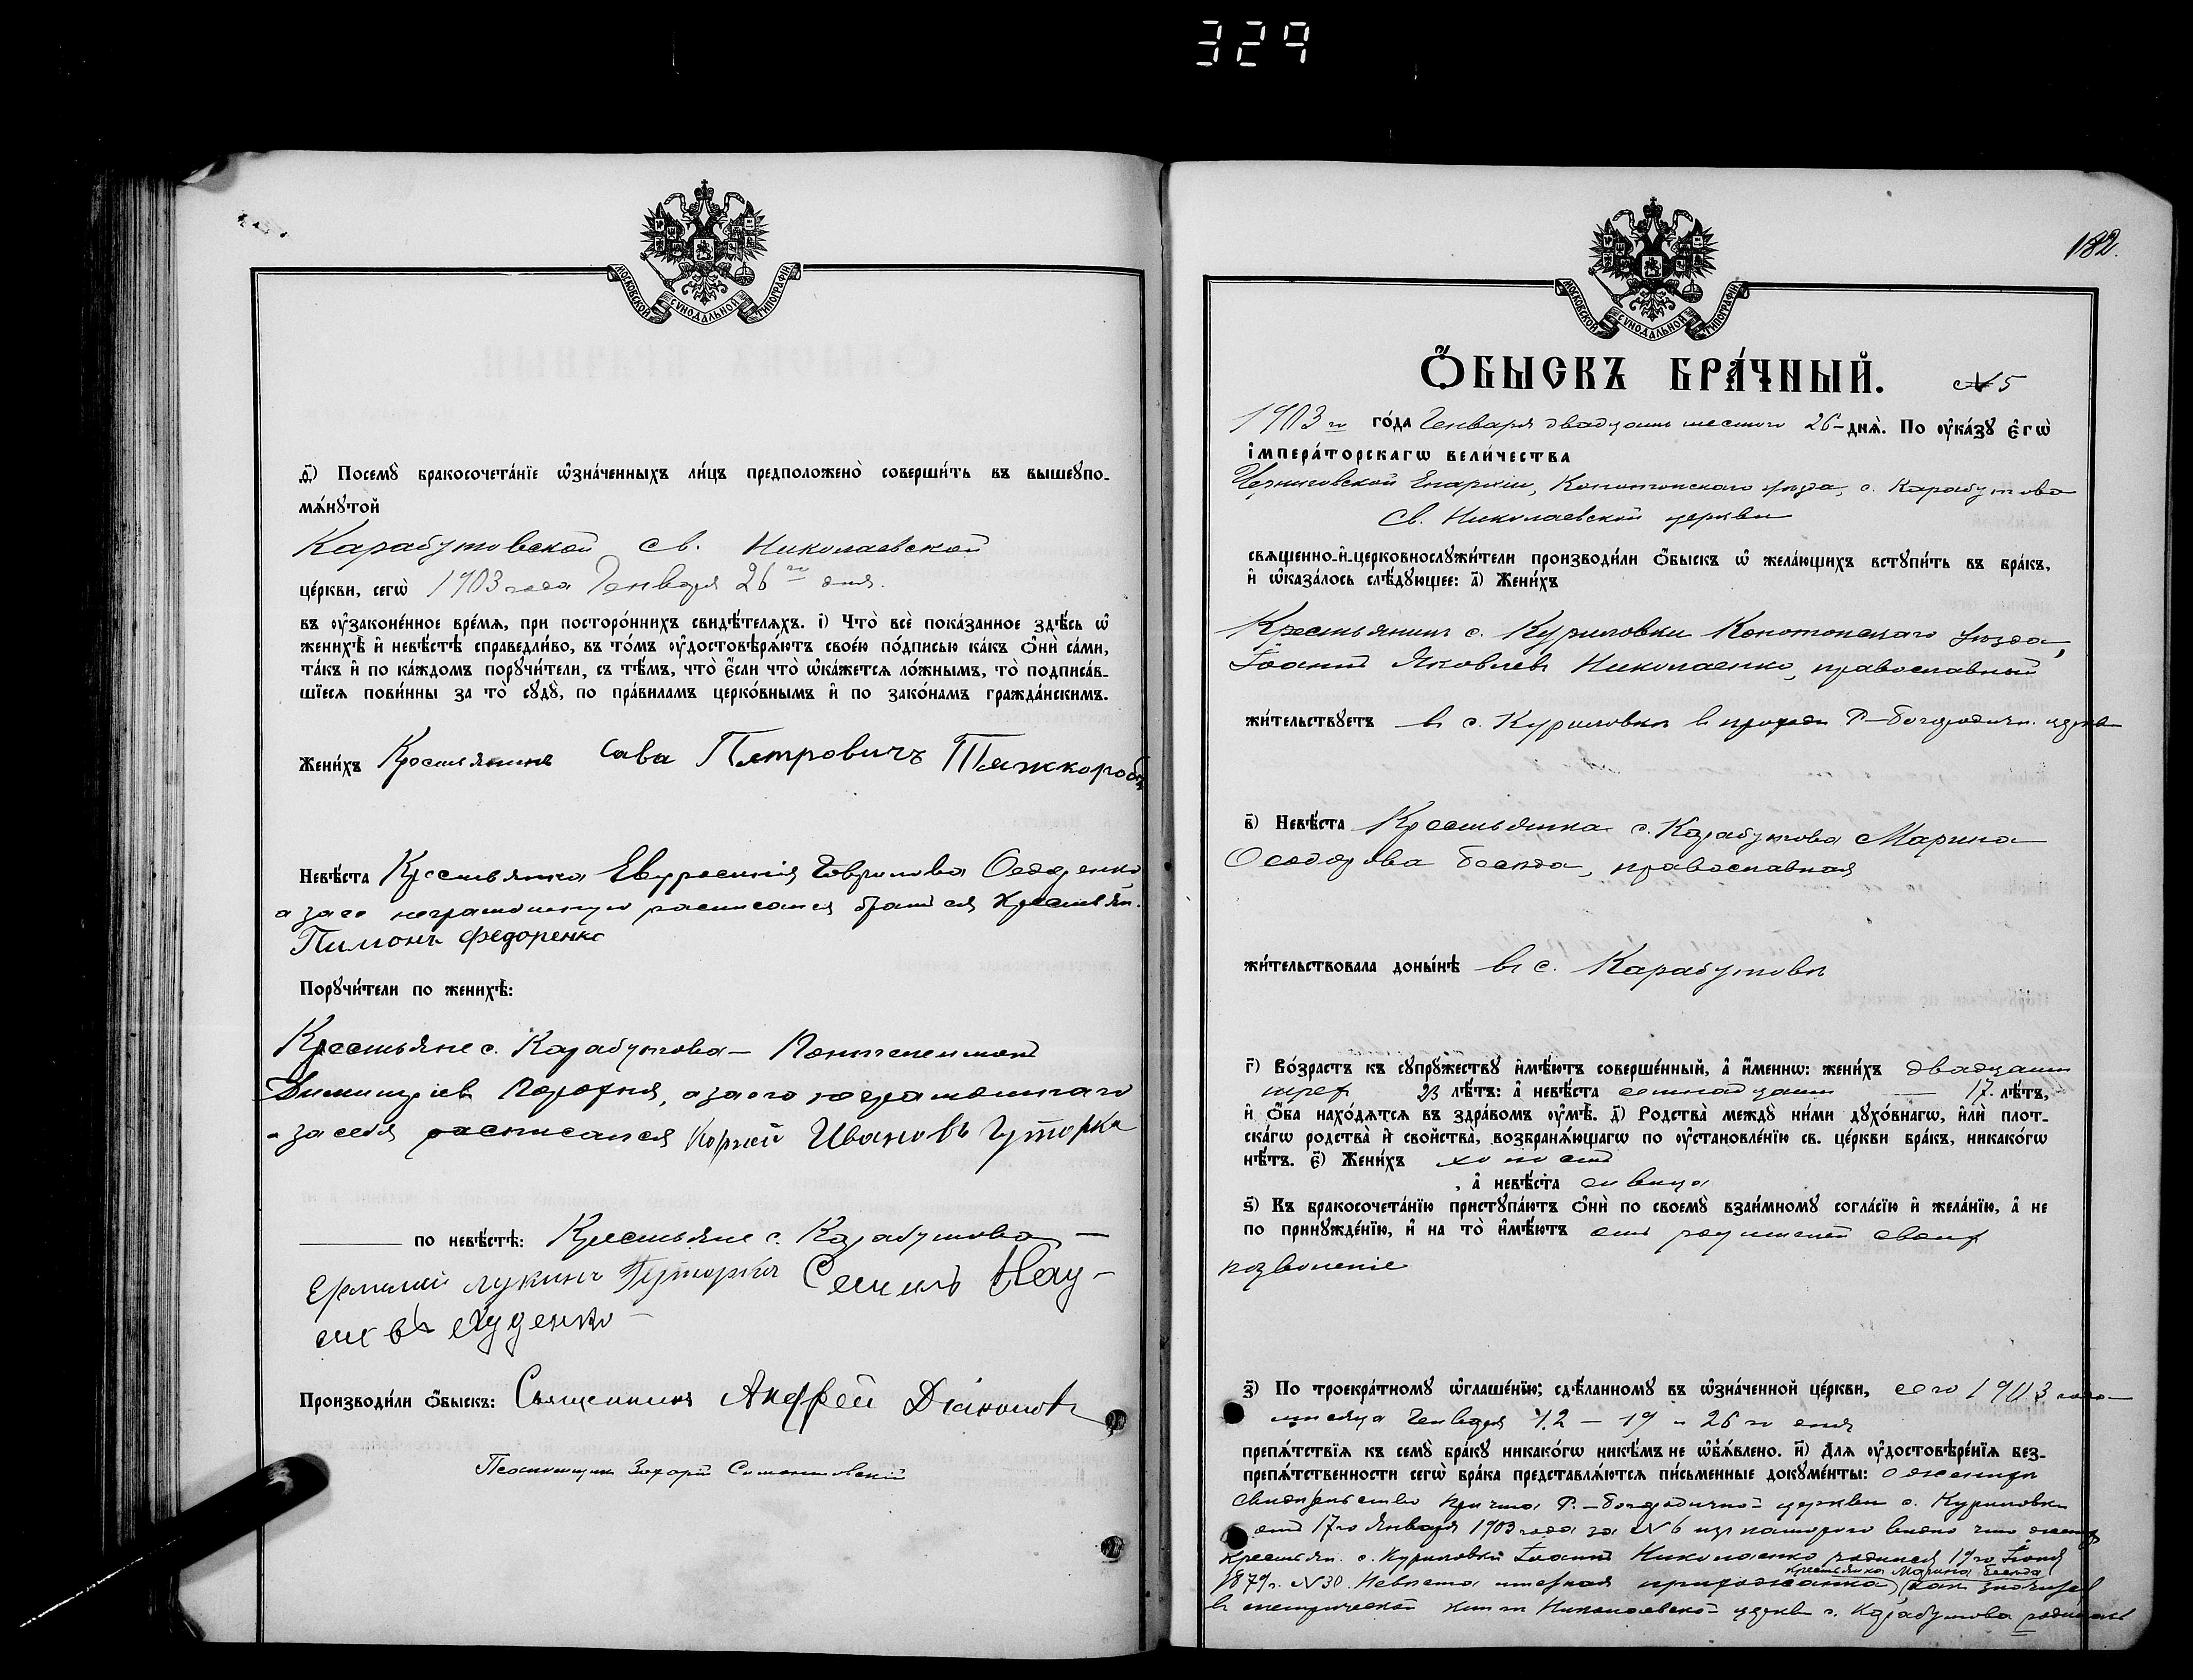 329
МОСКОВСКОЙ СѴНОДАЛЬНОЙ ТИПОГРАФІИ
ѳ҃) Посемꙋ̀ бракосочета́нїе ѡ҆зна́ченныхъ ли́цъ предположено̀ соверши́ть въ вышеꙋпо-
мѧ́нꙋтой
Карабутовской св. Николаевской
це́ркви, сегѡ̀ 1903 года Генваря 26го дня.
въ ᲂу҆законе́нное вре́мѧ, при посторо́ннихъ свидѣ́телѧхъ. і҃) Что̀ всѐ пока́занное здѣ́сь ѡ҆
женихѣ̀ и҆ невѣ́стѣ справедли́во, въ то́мъ ᲂу҆достовѣрѧ́ютъ свое́ю по́дписью ка́къ Ѻ҆нѝ са́ми,
та́къ и҆ по ка́ждомъ порꙋчи́тели, съ тѣ́мъ, что̀ є҆́сли что̀ ѡ҆ка́жетсѧ ло́жнымъ, то̀ подписа́в-
шїесѧ пови́нны за то̀ сꙋдꙋ̀, по пра́виламъ церко́внымъ и҆ по зако́намъ гражда́нскимъ.
Жени́хъ Крестьянинъ Сава Петровичъ Тяжкоробъ
Невѣ́ста Крестьянка Евфросинія Гаврилова Федоренко
а за ее неграмотную расписался братъ ея Крестьян.
Пимонъ Федоренко
Порꙋчи́тели по женихѣ̀:
Крестьяне с. Карабутова – Пантелеимонъ
Димитріев, а за его неграмотнаго
и за себя расписался Корней Ивановъ Гуторка
по невѣ́стѣ: Крестьяне с. Карабутова –
Ермилай Лукинъ Семенъ Нау-
мовъ Руденко
Производи́ли Ѻ҆́быскъ: Священникъ Андрей Діаконовъ
Псаломщикъ Захарій Симонтовскій
МОСКОВСКОЙ СѴНОДАЛЬНОЙ ТИПОГРАФІИ
182.
Ѻ҆́БЫСКЪ БРА́ЧНЫЙ. №5
1903го го́да Генваря двадцать шестого 26-днѧ̀. По ᲂу҆ка́зꙋ є҆гѡ̀
і҆мпера́торскагѡ вели́чества
Черниговской Епархіи, Конотопскаго уѣзда, с. Карабутова
Св. Николаевской церкви
свѧщенно-и҆-церковнослꙋжи́тели производи́ли Ѻ҆́быскъ ѡ҆ жела́ющихъ встꙋпи́ть въ бра́къ,
и҆ ѡ҆каза́лось слѣ́дꙋющее: а҃) Жени́хъ
Крестьянинъ с. Куриловки Конотопскаго уѣзда,
Іоаннъ Яковлевъ Николаенко, православный
жи́тельствꙋетъ въ с. Куриловкѣ в приходѣ Р–Богородичн. церкви
в҃) Невѣ́ста Крестьянка с. Карабутова Марина
Ѳеодорова Беседа, православная
жи́тельствовала доны́нѣ въ с. Карабутовѣ
г҃) Во́зрастъ къ сꙋпрꙋ́жествꙋ и҆мѣ́ютъ соверше́нный, а҆ и҆́меннѡ: жени́хъ двадцати
трех 23 лѣ́тъ: а҆ невѣ́ста семнадцати – 17. лѣ́тъ,
и҆ Ѻ҆́ба нахо́дѧтсѧ въ здра́вомъ ᲂу҆мѣ̀. д҃) Родства̀ междꙋ ни́ми дꙋхо́внагѡ, и҆лѝ плот-
ска́гѡ родства̀ и҆ сво́йства, возбранѧ́ющагѡ по ᲂу҆становле́нїю св. це́ркви бра́къ, никако́гѡ
нѣ́тъ. є҃) Жени́хъ холостъ
, а҆ невѣ́ста дѣвица
ѕ҃) Къ бракосочета́нїю пристꙋпа́ютъ Ѻ҆нѝ по своемꙋ̀ взаи́мномꙋ согла́сїю и҆ жела́нїю, а҆ не
по принꙋжде́нїю, и҆ на то̀ и҆мѣ́ютъ отъ родителей своих
позволеніе
з҃) По троекра́тномꙋ ѡ҆глаше́нїю; сдѣ́ланномꙋ въ ѡ҆зна́ченной це́ркви, сего 1903 года
мѣсяца Генваря 12 – 19 и 26 го дня
препѧ́тствїѧ къ семꙋ̀ бра́кꙋ никако́гѡ никѣ́мъ не ѡ҆б̾ѧ́влено. и҃) Длѧ ᲂу҆достовѣре́нїѧ без-
препѧ́тственности сегѡ̀ бра́ка представлѧ́ютсѧ пи́сьменные докꙋме́нты: о женихѣ
свидѣтельство причта Р.–Богородичной церкви с. Куриловки
отъ 17го Января 1903 года за №6 изъ котораго видно что жених
крестьян. с. Куриловки Іоаннъ Николаенко родился 19го Іюня
1879г. №30. Невѣста мѣстная прихожанка, крестьянка Марина Беседа как значится
в метрической книгѣ Николаевской церкви с. Карабутова родилась